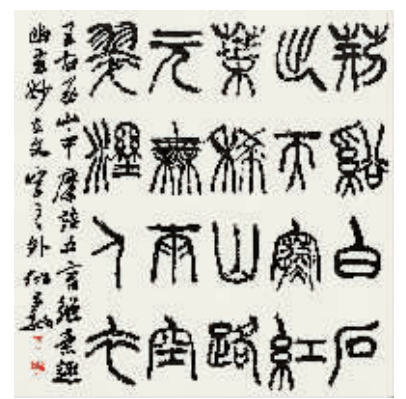 荊谿白石
出天寒紅
葉稀山路
元無雨空
翠溼人衣
王右丞山中摩詰五言絕
幽玄妙在文字之外